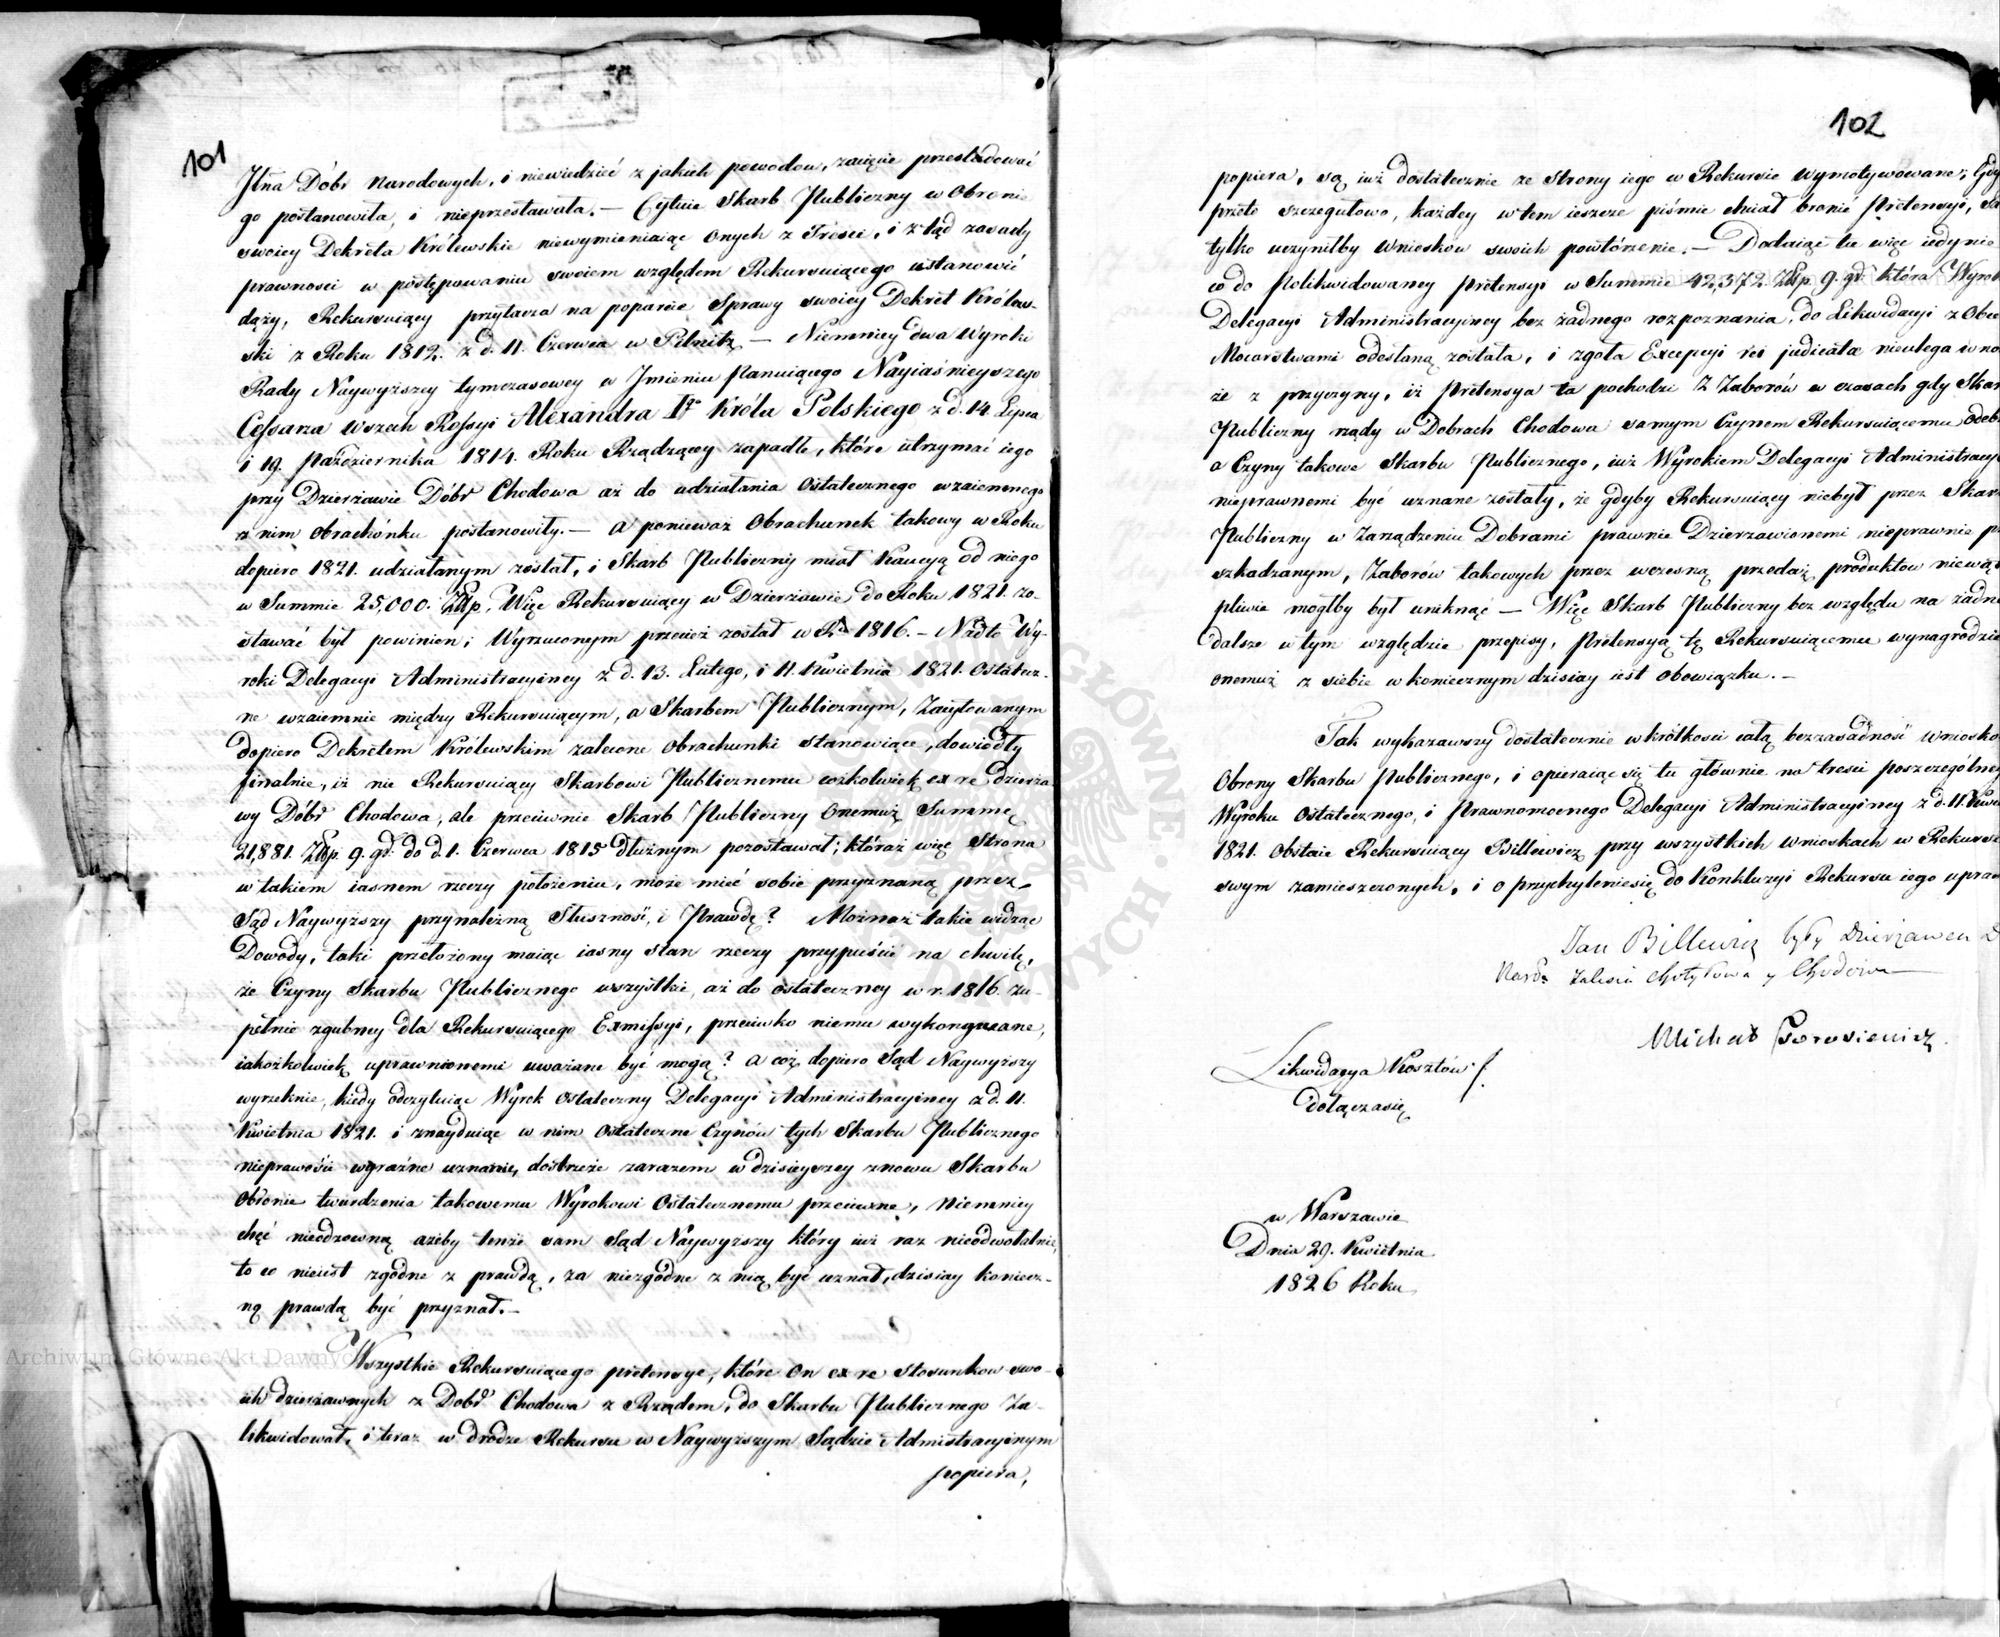 101
Jłna Dóbr Narodowych, i niewiedzieć z jakich powodow, zacięcie prześladować
go postanowiła, i nieprzestawała. — Cytuie Skarb Publiczny w Obronie
swoiey Dekreta Królewskie niewymieniaiąc onych z Treści, i ztąd zasady
prawności w postępowaniu swoiem względem Rekursuiącego ustanowić
dąży, Rekursuiący przytacza na poparcie Sprawy swoiey Dekret Królew-
ski z Roku 1812. z d. 11. Czerwca w Pilnitz — Niemniey dwa Wyroki
Rady Naywyższey tymczasowey w Jmieniu Panuiącego Nayiaśnieyszego
Cessarza wszech Rossyi Alexandra Igo Króla Polskiego z d. 14. Lipca
i 19. Października 1814. Roku Rządzącey zapadłe, które utrzymać iego
przy Dzierżawie Dóbr Chodowa aż do udziałania Ostatecznego wzaiemnego
z nim Obrachónku postanowiły. — a ponieważ Obrachunek takowy w Roku
dopiero 1821. udziałanym został, i Skarb Publiczny miał Kaucyą od niego
w Summie 25,000. Złłp, Więc Rekursuiący w Dzierżawie do Roku 1821. zo-
stawać był powinien; Wyrzuconym przecież został w Rú 1816. — Nadto Wy-
roki Delegacyi Administracyiney z d. 13. Lutego, i 11. Kwietnia 1821. Ostatecz-
ne wzaiemnie między Rekursuiącym, a Skarbem Publicznym, Zacytowanym
dopiero Dekretem Królewskim zalecone obrachunki stanowiące, dowiodły
finalnie, iż nie Rekursuiący Skarbowi Publicznemu cożkolwiek ex re dzierża
wy Dóbr Chodowa, ale przeciwnie Skarb Publiczny Onemuż Summę
21,881. Złłp. 9. gr. do d. 1. Czerwca 1815 dłużnym pozostawał; któraż więc Strona
w takiem iasnem rzeczy położeniu, może mieć sobie przyznaną przez
Sąd Naywyższy przynależną Słuszność, i Prawdę? Możnaż takie widząc
Dowody, taki przełożony maiąc iasny stan rzeczy przypuścić na chwilę,
że Czyny Skarbu Publicznego wszystkie, aż do ostateczney w r. 1816. zu-
pełnie zgubney dla Rekursuiącego Exmissyi, przeciwko niemu wykonywane,
iakożkolwiek uprawnionemi uważane być mogą? a coż dopiero Sąd Naywyższy
wyrzeknie, kiedy odczytuiąc Wyrok Ostateczny Delegacyi Administracyiney z d. 11.
Kwietnia 1821. i znayduiąc w nim Ostateczne Czynów tych Skarbu Publicznego
nieprawości wyraźne uznanie, dostrzeże zarazem w dzisieyszey znowu Skarbu
Obronie twierdzenia takowemu Wyrokowi Ostatecznemu przeciwne, niemniey
chęć nieodzowną ażeby tenże sam Sąd Naywyższy który iuż raz nieodwołalnie,
to co nieiest zgodne z prawdą, za niezgodne z nią być uznał, dzisiay koniecz-
ną prawdą być przyznał. —
Wszystkie Rekursuiącego pretensye, które On ex re stosunkow swo-
ich dzierżawnych z Dobr Chodowa z Rządem, do Skarbu Publicznego Za-
likwidował, i teraz w drodze Rekursu w Naywyższym Sądzie Admistracyinym
popiera,
102
popiera, są iuż dostatecznie ze strony iego w Rekursie wymotywowane; Gdy
przeto szczegułowo, każdey w tem ieszcze piśmie chciał bronić Pretensyi,
tylko uczyniłby wniosków swoich powtórzenie. — Dodaiąc tu więc iedynie
co do Polikwidowaney Pretensyi w Summie 42,372. Złłp. 9. gr. która Wyrok
Delegacyi Administracyiney bez żadnego rozpoznania, do Likwidacyi z Obce
Mocarstwami odesłaną została, i zgoła Excepcyi rei judicatæ nieulega wno
że z przyczyny, iż Pretensya ta pochodzi z Zaborów w czasach gdy Skar
Publiczny rządy w Dobrach Chodowa samym Czynem Rekursuiącemu odeb
a Czyny takowe Skarbu Publicznego, iuż Wyrokiem Delegacyi Administracyi
nieprawnemi być uznane zostały, że gdyby Rekursuiący niebył przez Skar
Publiczny w Zarządzeniu Dobrami prawnie Dzierżawionemi nieprawnie p
szkadzanym, Zaborów takowych przez wczesną przedaż produktow niewą
pliwie mógłby był uniknąć — Więc Skarb Publiczny bez względu na żadne
dalsze w tym względzie przepisy, Pretensyą tę Rekursuiącemu wynagrodzi
onemuż z siebie w koniecznym dzisiay iest obowiązku. —
Tak wykazawszy dostatecznie w krótkości całą bezzasadność wniosko
Obrony Skarbu Publicznego, i opieraiąc się tu głównie na tresci poszczególney
Wyroku Ostatecznego, i Prawnomocnego Delegacyi Administracyiney z d. 11. Kwie
1821. Obstaie Rekursuiący Billewicz przy wszystkich wnioskach w Rekursie
swym zamieszczonych, i o przychylenie się do Konkluzyi Rekursu iego upra
Jan Billewicz były Dzierżawca D
Narod. Zalesia Chodowa
Michał
Likwidacya Kosztów
dołącza się
w Warszawie
Dnia 29. Kwietnia
1826 Roku
Archiwum Główne Akt Dawnych